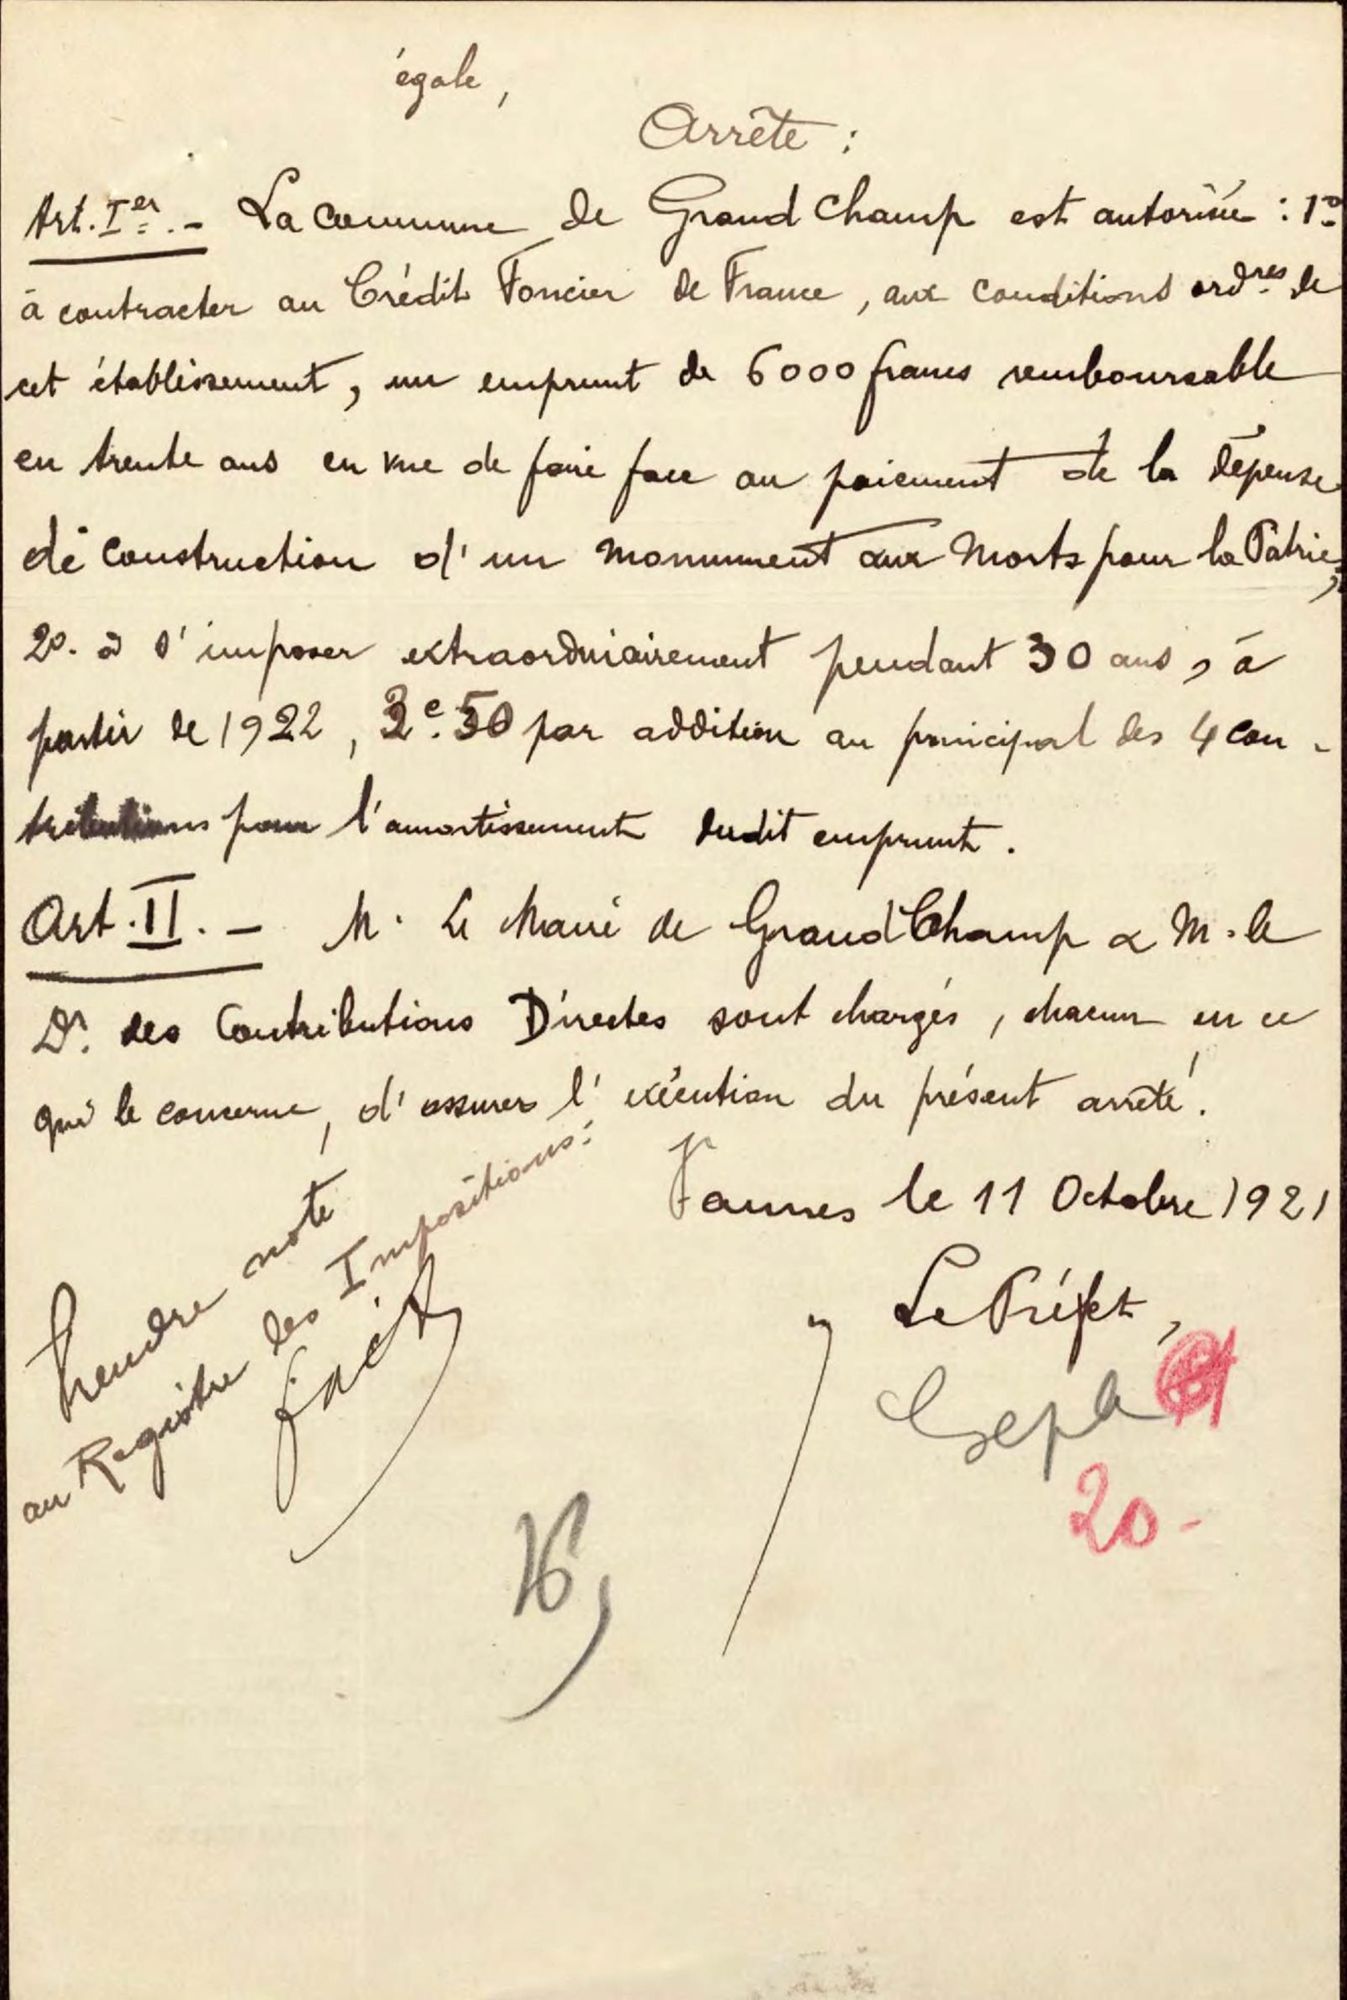 égale,
Arrête :
Art. Ier. - La Commune de Grand Champ est autorisée : 1o
à contracter au Crédit Foncier de France, aux conditions ordres de
cet établissement, un emprunt de 6000 francs remboursable
en trente ans en vue de faire face au paiement de la dépense
de construction d'un monument aux Morts pour la Patrie ;
2o. à s'imposer extraordinairement pendant 30 ans, à
partir de 1922, 3c.50 par addition au principal des 4 con-
tributions pour l'amortissement dudit emprunt.
Art. II. - M. Le Maire de Grand Champ & M. le
Dr. des Contributions Directes sont chargés, chacun en ce
qui le concerne, d'assurer l'exécution du présent arrêté.
Vannes le 11 Octobre 1921
Le Préfet,
Prendre note
au Registre des Impositions.
fait
20-